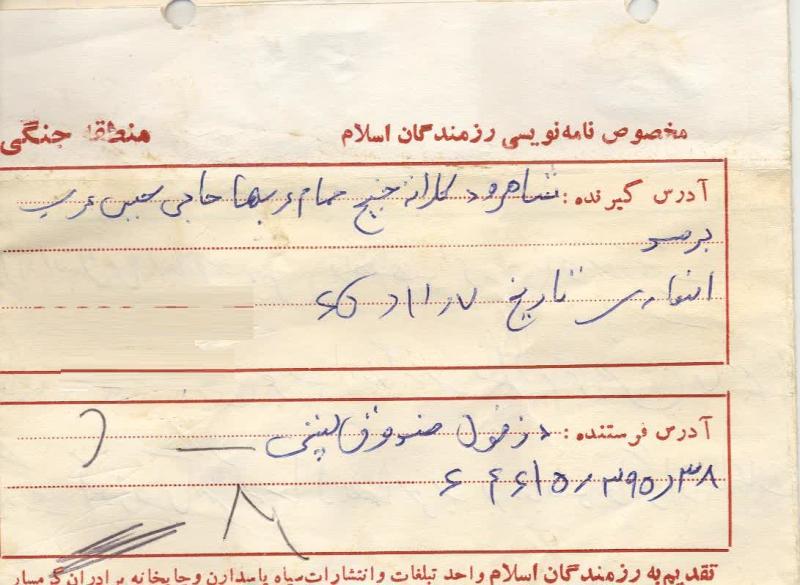 مخصوص نامه‌نویسی رزمندگان اسلام منطقه جنگی
آدرس گیرنده: شاهرود کلاته خیج حمام عربها حاجی حسین عرب
برسد
تاریخ ۷ر۱۱ر۶۵
آدرس فرستنده: دزفول صندوق پستی
۳۸ر۳۹۵
تقدیم به رزمندگان اسلام واحد تبلغات و انتشارات سپاه پاسدارن و چاپخانه برادران گرمسار